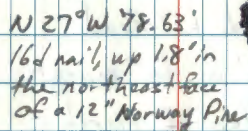 N 27° W 78.63'
16d nail, up 1.8' in
the northeast face
of a 12" Norway Pine